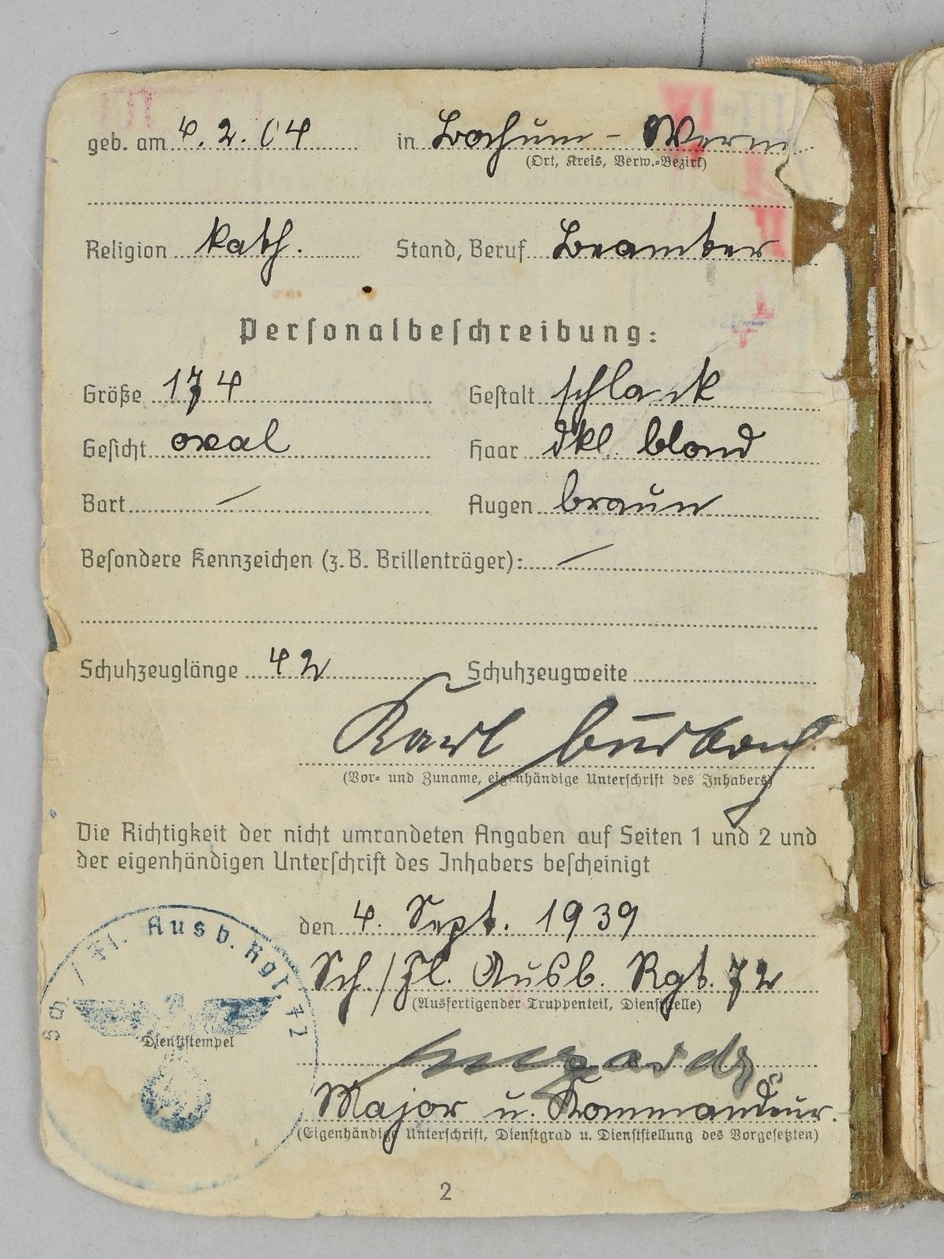 geb. am 4.2.04 in Bochum - Wern
(Ort, Kreis, Verw.-Bezirk)
Religion kath. Stand, Beruf Beamter
Personalbeschreibung:
Größe 174 Gestalt schlank
Gesicht oval Haar dkl. blond
Bart — Augen braun
Besondere Kennzeichen (z.B. Brillenträger): —
Schuhzeuglänge 42 Schuhzeugweite
Karl Burbach
(Vor- und Zuname, eigenhändige Unterschrift des Inhabers)
Die Richtigkeit der nicht umrandeten Angaben auf Seiten 1 und 2 und
der eigenhändigen Unterschrift des Inhabers bescheinigt
den 4. Sept. 1939
Sch./Fl. Ausb. Rgt. 72
(Ausfertigender Truppenteil, Dienststelle)
/ Fl. Ausb. Rgt. 72
Dienststempel
Major u. Kommandeur.
(Eigenhändige Unterschrift, Dienstgrad u. Dienststellung des Vorgesetzten)
2